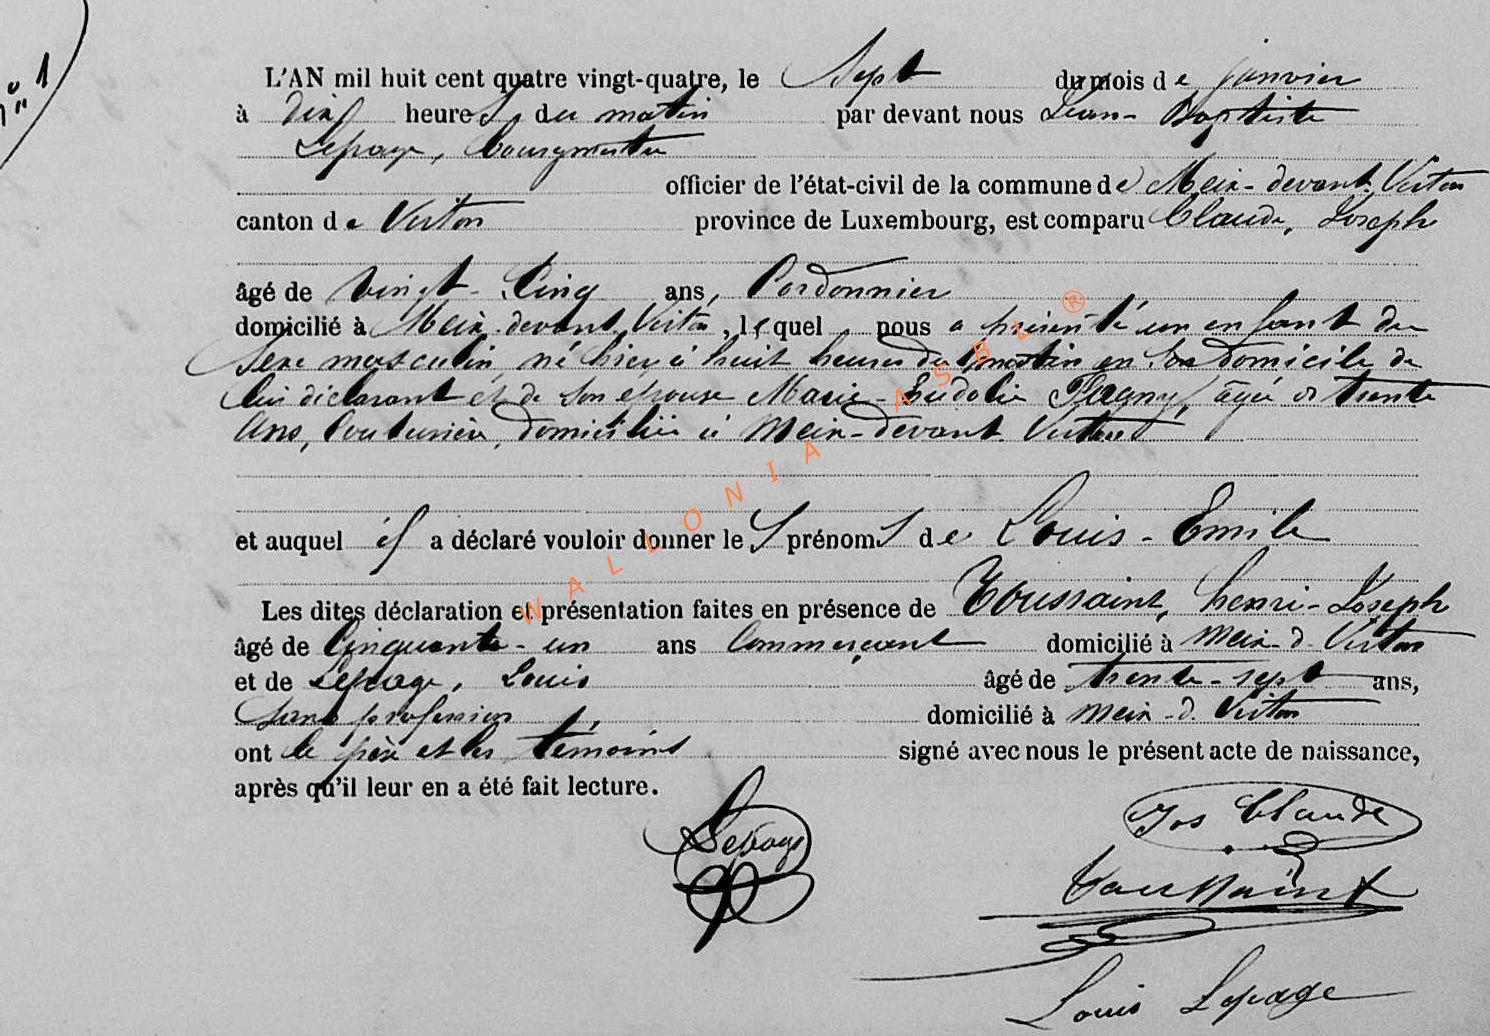 N° 1
L'AN mil huit cent quatre vingt-quatre, le Sept du mois de janvier
à dix heures du matin par devant nous Jean-Baptiste
Lepage, bourgmestre
officier de l'état-civil de la commune de Meix-devant-Virton
canton de Virton province de Luxembourg, est comparu Claude, Joseph
âgé de vingt-cinq ans, Cordonnier
domicilié à Meix-devant-Virton, lequel nous a présenté un enfant du
sexe masculin, né hier à huit heures du matin en son domicile de
lui déclarant et de son épouse Marie-Eudolie Fagny, âgée de trente
ans, Couturière, domiciliée à Meix-devant-Virton
et auquel il a déclaré vouloir donner les prénoms de Louis-Emile
Les dites déclaration et présentation faites en présence de Toussaint, henri-Joseph
âgé de Cinquante-un ans Commerçant domicilié à Meix-d-Virton
et de Lepage, Louis âgé de trente-sept ans,
sans profession, domicilié à meix-d-Virton
ont le père et les témoins signé avec nous le présent acte de naissance,
après qu'il leur en a été fait lecture.
Lepage
Jos Claude
Toussaint
Louis Lepage
WALLONIA ASBL ®